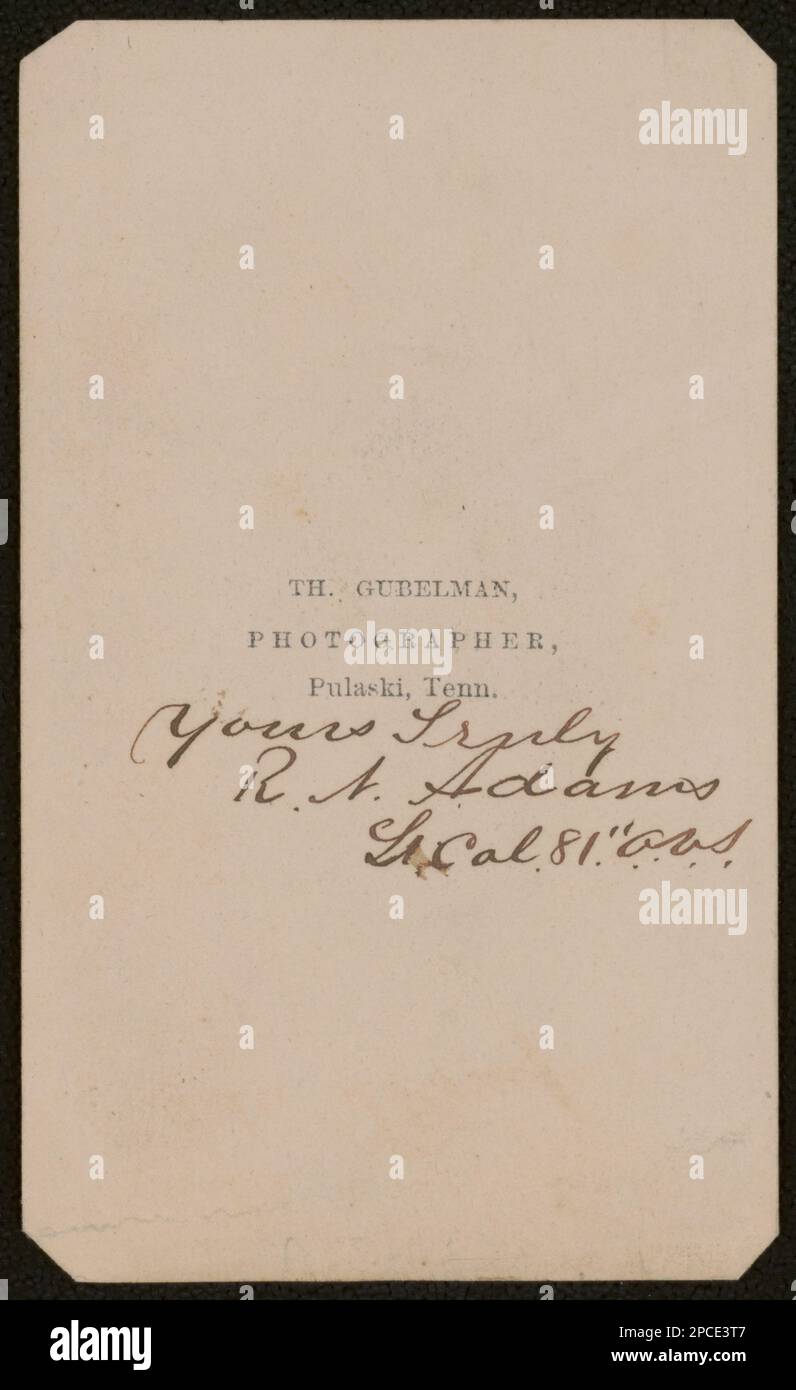 TH. GUBELMAN,
PHOTOGRAPHER,
Pulaski, Tenn.
Yours Truly
R. N. Adams
Lt. Col. 81" O.V.I.
alamy
alamy
alamy
alamy
Image ID: 2PCE3T7
www.alamy.com